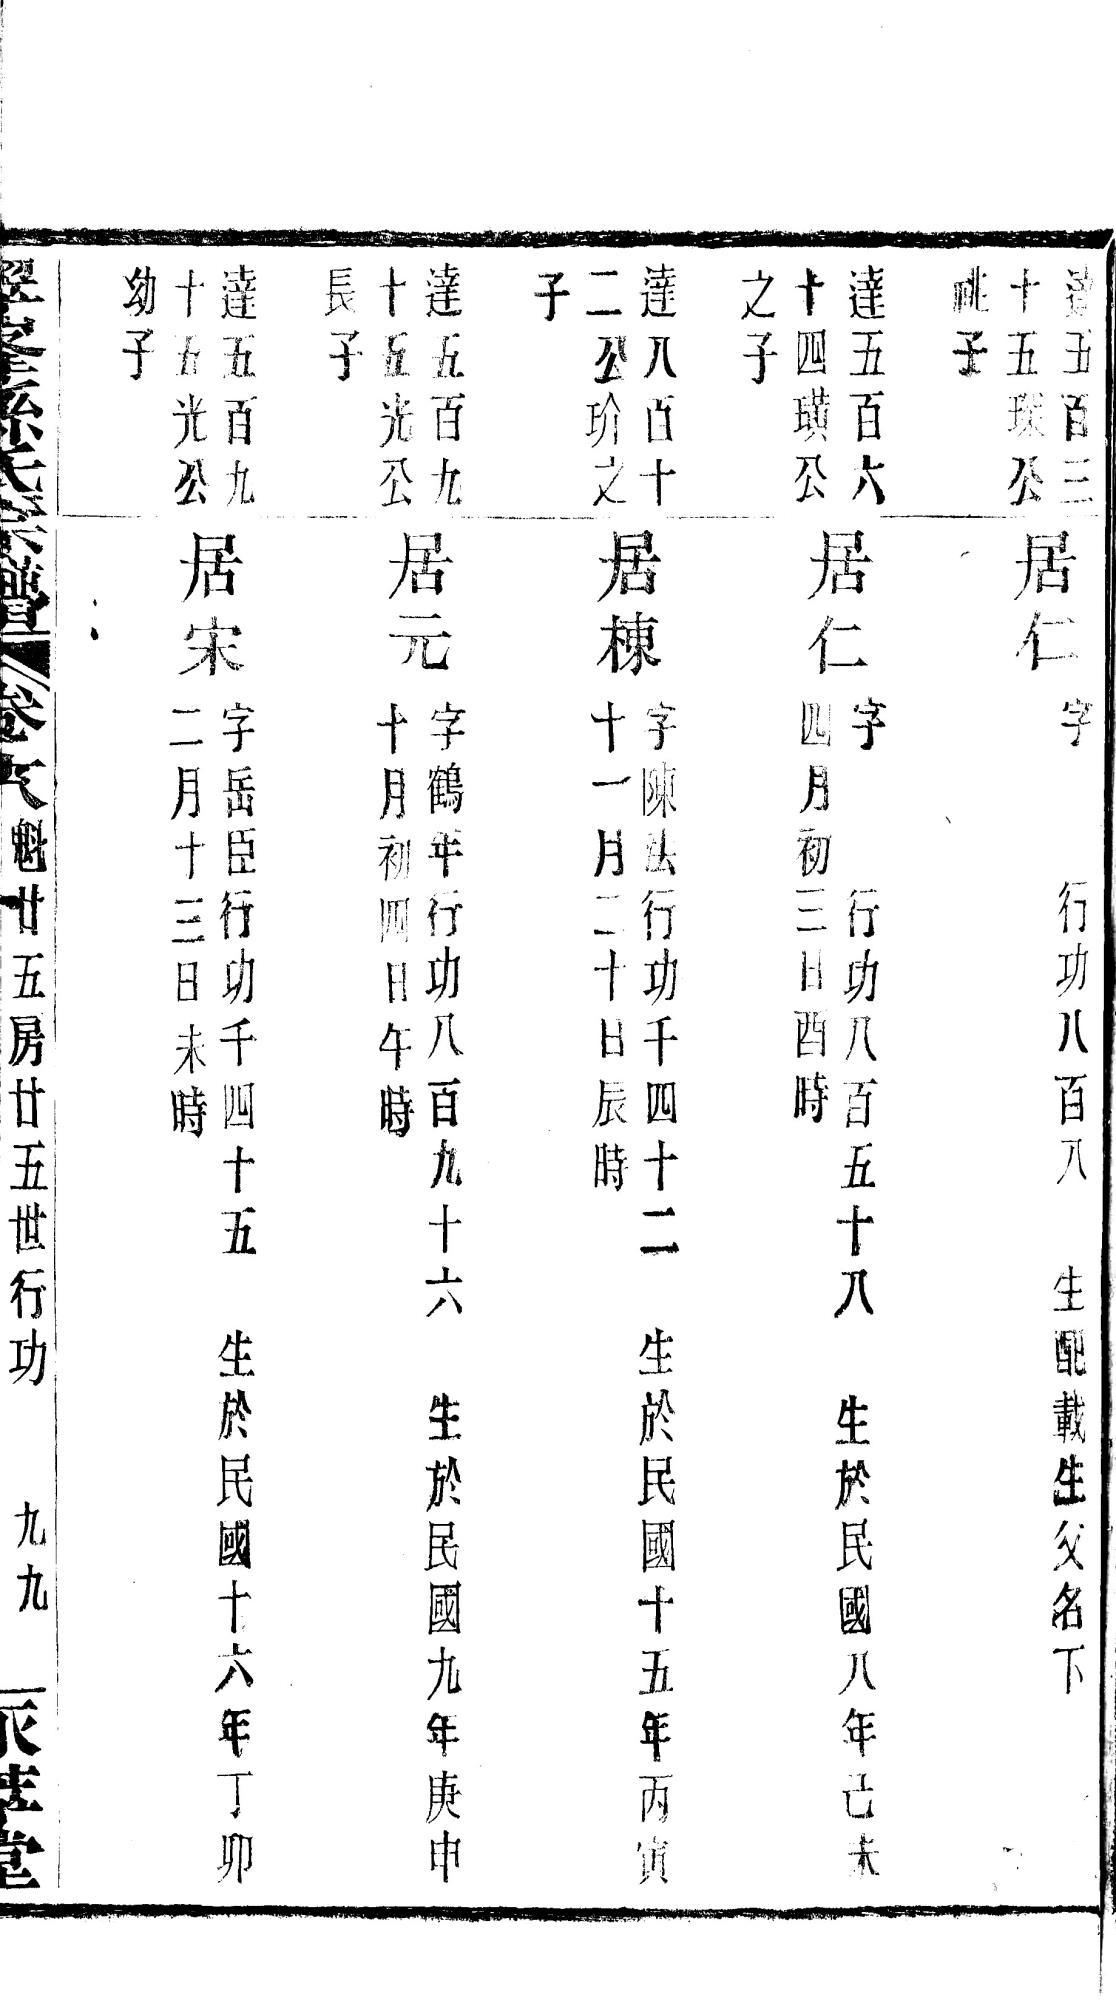 達五百三
十五琛公
祧子
居仁
字　行功八百八　生配載生父名下
達五百六
十四璜公
之子
居仁
字　行功八百五十八　生於民國八年己未
四月初三日酉時
達八百十
二公玠之
子
居棟
字陳法行功千四十二　生於民國十五年丙寅
十一月二十日辰時
達五百九
十五光公
長子
居元
字鶴年行功八百九十六　生於民國九年庚申
十月初四日午時
達五百九
十五光公
幼子
居宋
字岳臣行功千四十五　生於民國十六年丁卯
二月十三日未時
孫氏宗譜 卷 魁廿五房廿五世行功 九九 堂